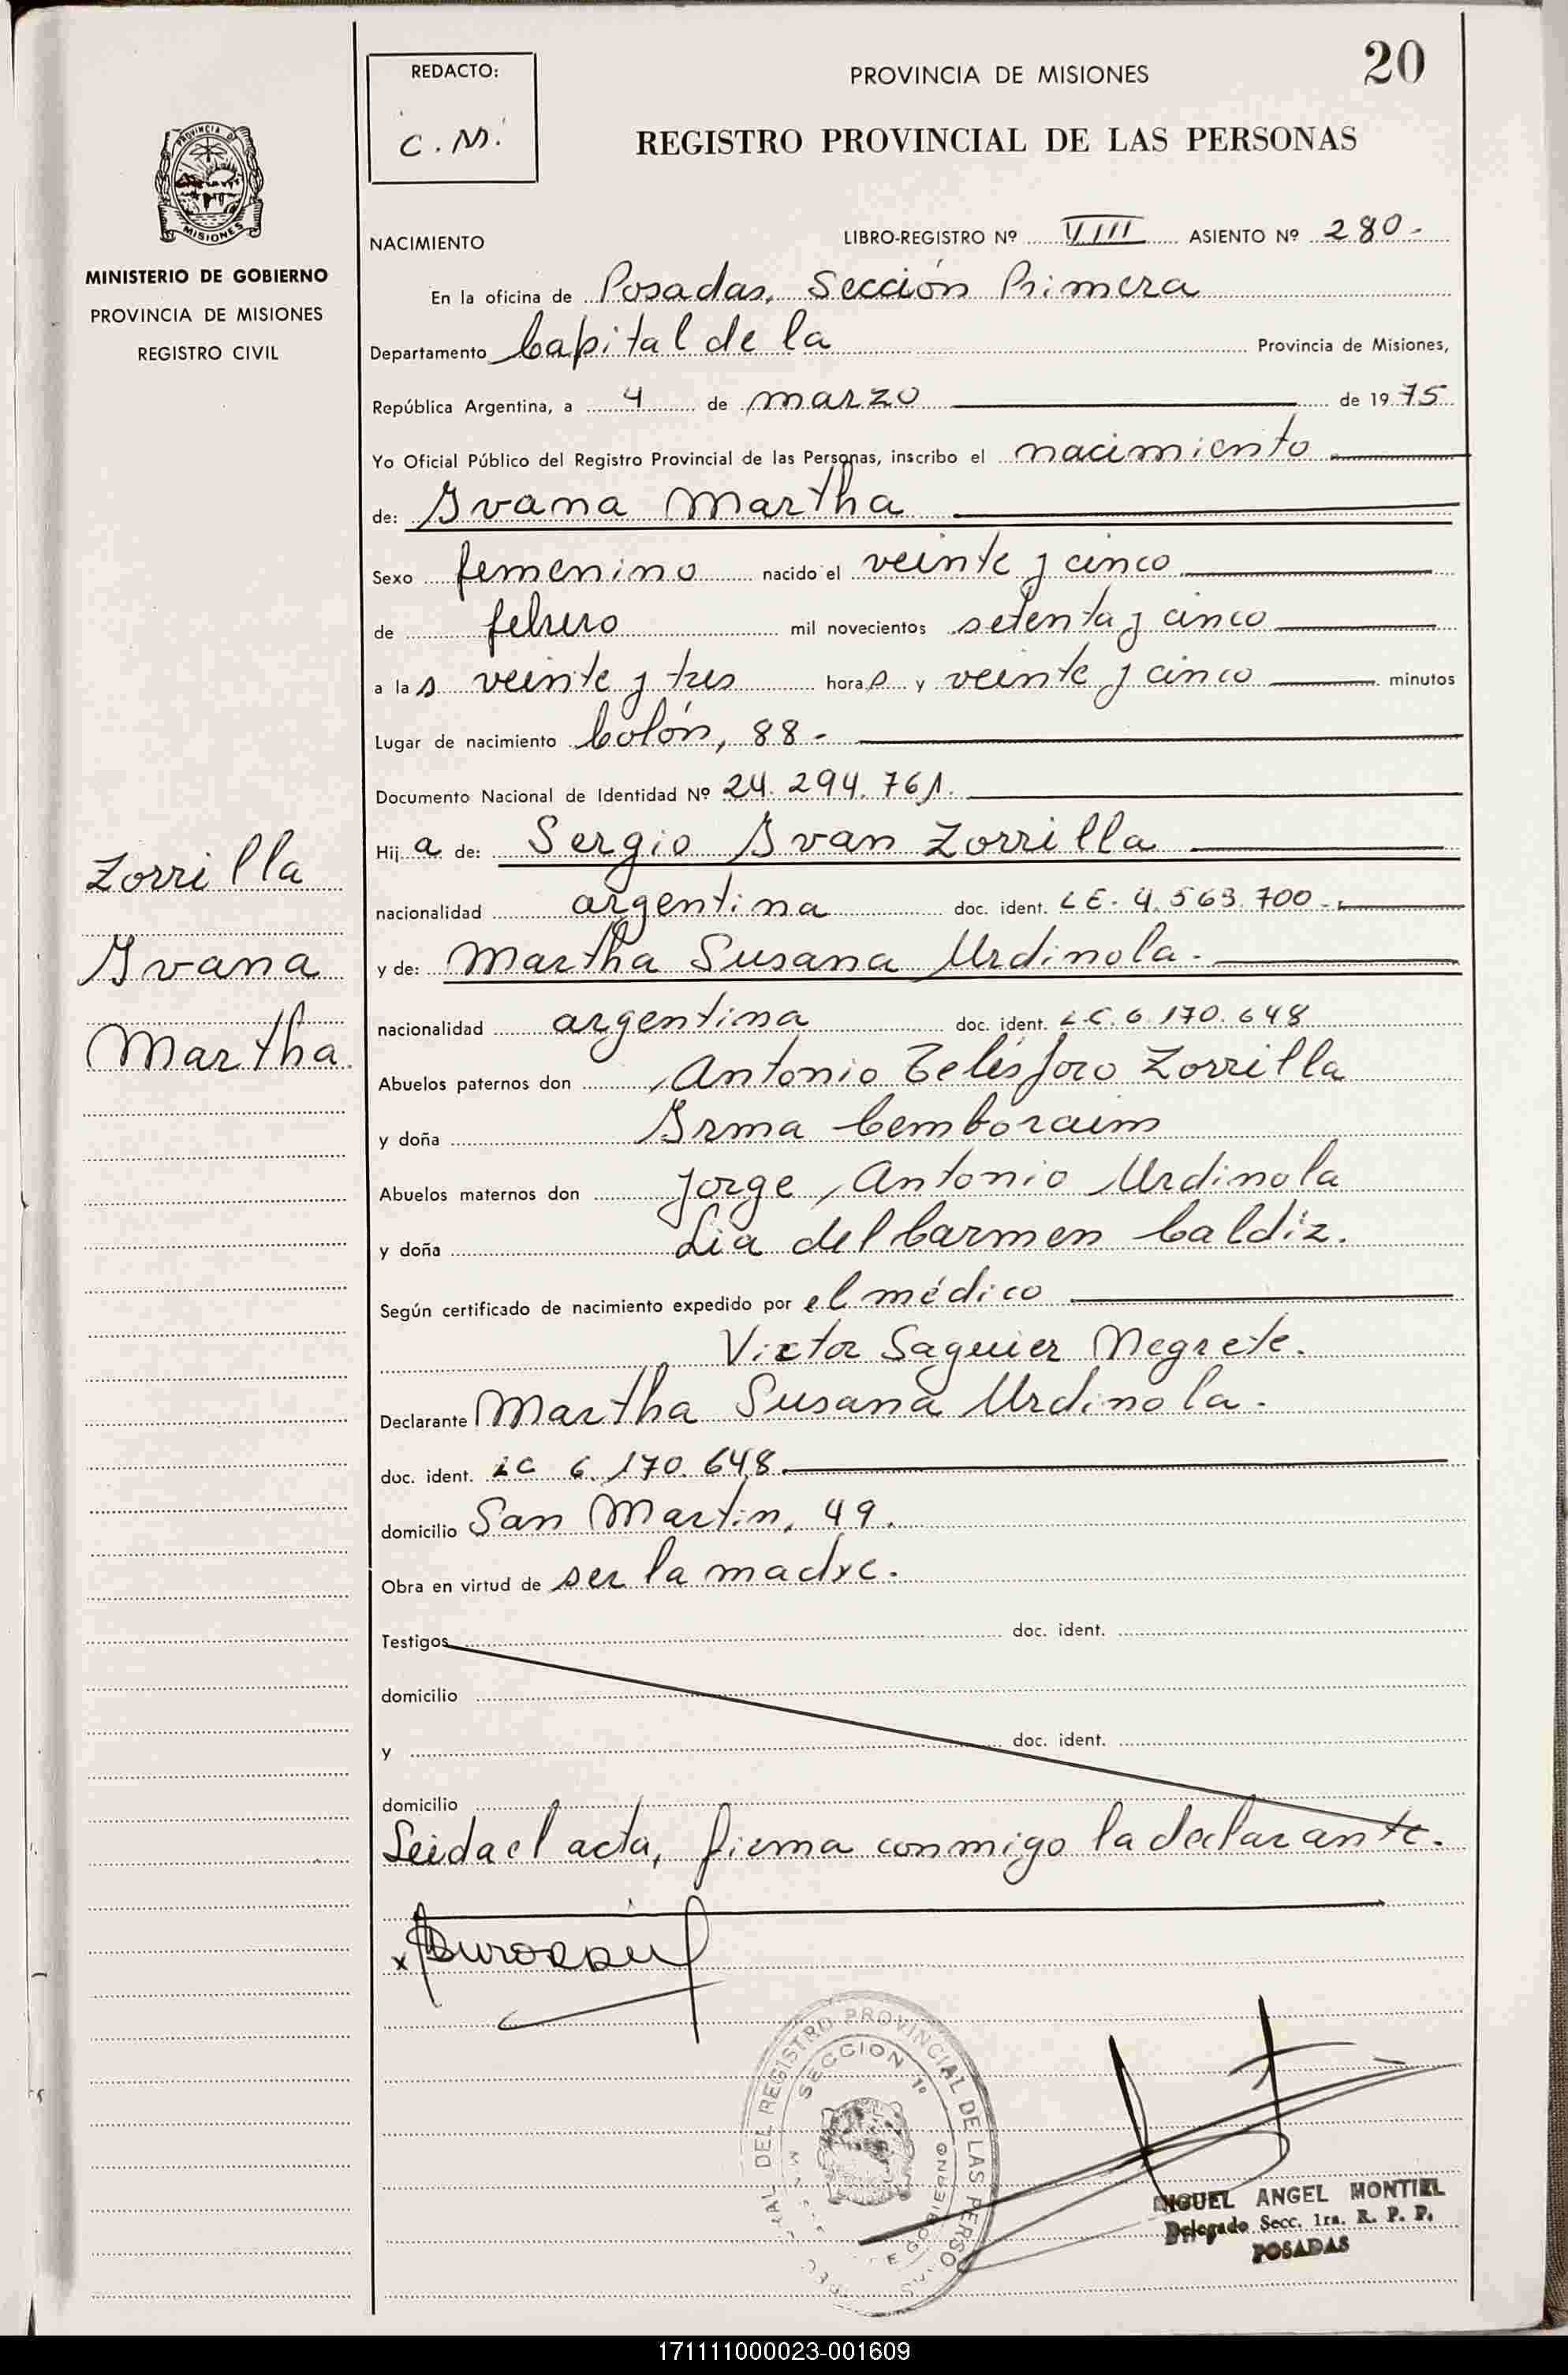 20
REDACTO:
C.M.
PROVINCIA DE MISIONES
REGISTRO PROVINCIAL DE LAS PERSONAS
PROVINCIA DE
MISIONES
MINISTERIO DE GOBIERNO
PROVINCIA DE MISIONES
REGISTRO CIVIL
NACIMIENTO LIBRO-REGISTRO Nº VIII ASIENTO Nº 280.-
En la oficina de Posadas, Sección Primera
Departamento Capital de la Provincia de Misiones,
República Argentina, a 4 de marzo de 1975
Yo Oficial Público del Registro Provincial de las Personas, inscribo el nacimiento
de: Ivana Martha
Sexo femenino nacido el veinte y cinco
de febrero mil novecientos setenta y cinco
a las veinte y tres horas y veinte y cinco minutos
Lugar de nacimiento Colón, 88.-
Documento Nacional de Identidad Nº 24.294.761.
Hija de: Sergio Ivan Zorrilla
nacionalidad argentina doc. ident. LE. 4.563.700.-
y de: Martha Susana Urdinola.-
nacionalidad argentina doc. ident. LC. 6.170.648
Abuelos paternos don Antonio Telésforo Zorrilla
y doña Irma Cemborain
Abuelos maternos don Jorge Antonio Urdinola
y doña Lia del Carmen Caldíz.
Según certificado de nacimiento expedido por el médico
Victor Saguier Negrete.
Declarante Martha Susana Urdinola.-
doc. ident. LC 6.170.648.
domicilio San Martín, 49.
Obra en virtud de ser la madre.-
Testigos doc. ident.
domicilio
y doc. ident.
domicilio
Leida el acta, firma conmigo la declarante.-
Zorrilla
Ivana
Martha.
x
DEL REGISTRO PROVINCIAL DE LAS PERSONAS
SECCION 1ª
GOBIERNO
MIGUEL ANGEL MONTIEL
Delegado Secc. 1ra. R. P. P.
POSADAS
171111000023-001609